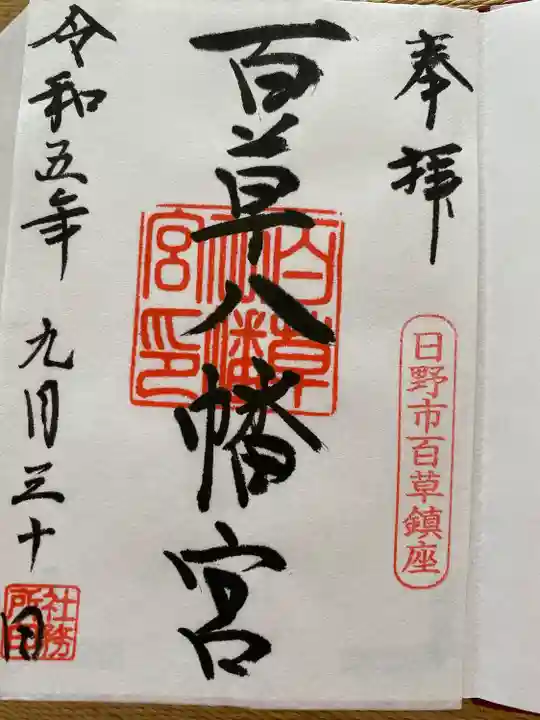 奉拝
日野市百草鎮座
百草八幡宮
百草八幡宮印
令和五年 九月三十日
社務所印